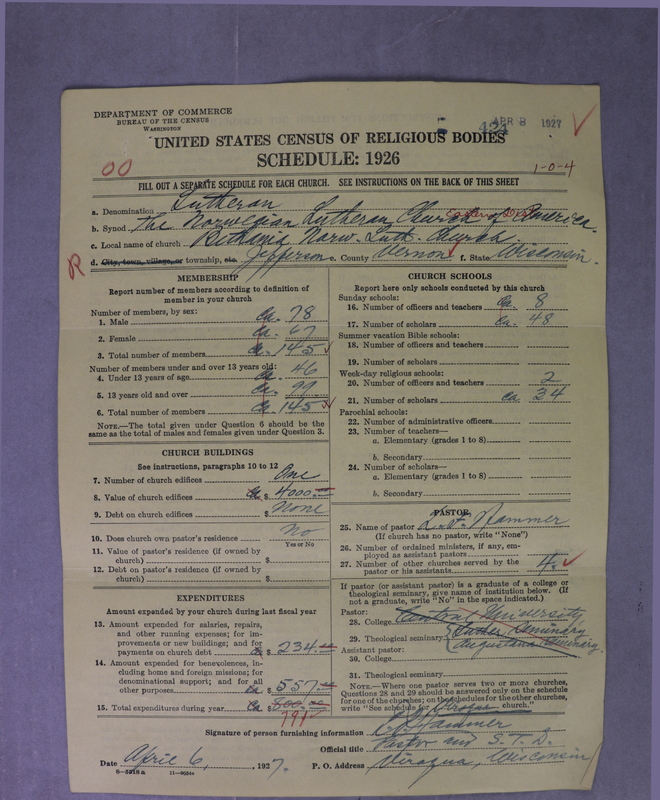 DEPARTMENT OF COMMERCE
BUREAU OF THE CENSUS
WASHINGTON
APR 8 1927
UNITED STATES CENSUS OF RELIGIOUS BODIES
SCHEDULE: 1926
00
1-0-4
FILL OUT A SEPARATE SCHEDULE FOR EACH CHURCH. SEE INSTRUCTIONS ON THE BACK OF THIS SHEET
a. Denomination Lutheran
b. Synod The Norwegian Lutheran Church of America.
c. Local name of church Bethania Norw. Luth. Church
R
d. City, town, village, or township, etc. Jefferson e. County Vernon f. State Wisconsin.
MEMBERSHIP
Report number of members according to definition of
member in your church
Number of members, by sex:
1. Male Ca. 78
2. Female Ca. 67
3. Total number of members Ca. 145
Number of members under and over 13 years old:
4. Under 13 years of age Ca. 46
5. 13 years old and over Ca. 99
6. Total number of members Ca 145
NOTE.—The total given under Question 6 should be the
same as the total of males and females given under Question 3.
CHURCH BUILDINGS
See instructions, paragraphs 10 to 12
7. Number of church edifices One
8. Value of church edifices Ca $ 4000.
9. Debt on church edifices $ None
10. Does church own pastor's residence No
Yes or No
11. Value of pastor's residence (if owned by
church) $
12. Debt on pastor's residence (if owned by
church) $
EXPENDITURES
Amount expended by your church during last fiscal year
13. Amount expended for salaries, repairs,
and other running expenses; for im-
provements or new buildings; and for
payments on church debt Ca $ 234.
14. Amount expended for benevolences, in-
cluding home and foreign missions; for
denominational support; and for all
other purposes Ca $ 557.
15. Total expenditures during year Ca $ 800.
791
CHURCH SCHOOLS
Report here only schools conducted by this church
Sunday schools:
16. Number of officers and teachers Ca. 8
17. Number of scholars Ca. 48
Summer vacation Bible schools:
18. Number of officers and teachers
19. Number of scholars
Week-day religious schools:
20. Number of officers and teachers 2
21. Number of scholars Ca 34
Parochial schools:
22. Number of administrative officers
23. Number of teachers—
a. Elementary (grades 1 to 8)
b. Secondary
24. Number of scholars—
a. Elementary (grades 1 to 8)
b. Secondary
PASTOR
25. Name of pastor Hammer
(If church has no pastor, write "None")
26. Number of ordained ministers, if any, em-
ployed as assistant pastors
27. Number of other churches served by the
pastor or his assistants 4.
If pastor (or assistant pastor) is a graduate of a college or
theological seminary, give name of institution below. (If
not a graduate, write "No" in the space indicated.)
Pastor:
28. College University
29. Theological seminary Luther Seminary
Augustana Seminary.
Assistant pastor:
30. College
31. Theological seminary
NOTE.—Where one pastor serves two or more churches,
Questions 28 and 29 should be answered only on the schedule
for one of the churches; on the schedules for the other churches,
write "See schedule for Viroqua church."
Signature of person furnishing information Hammer
Official title Pastor and S. T. D.
Date April 6, , 1927. P. O. Address Viroqua, Wisconsin
8-5218a